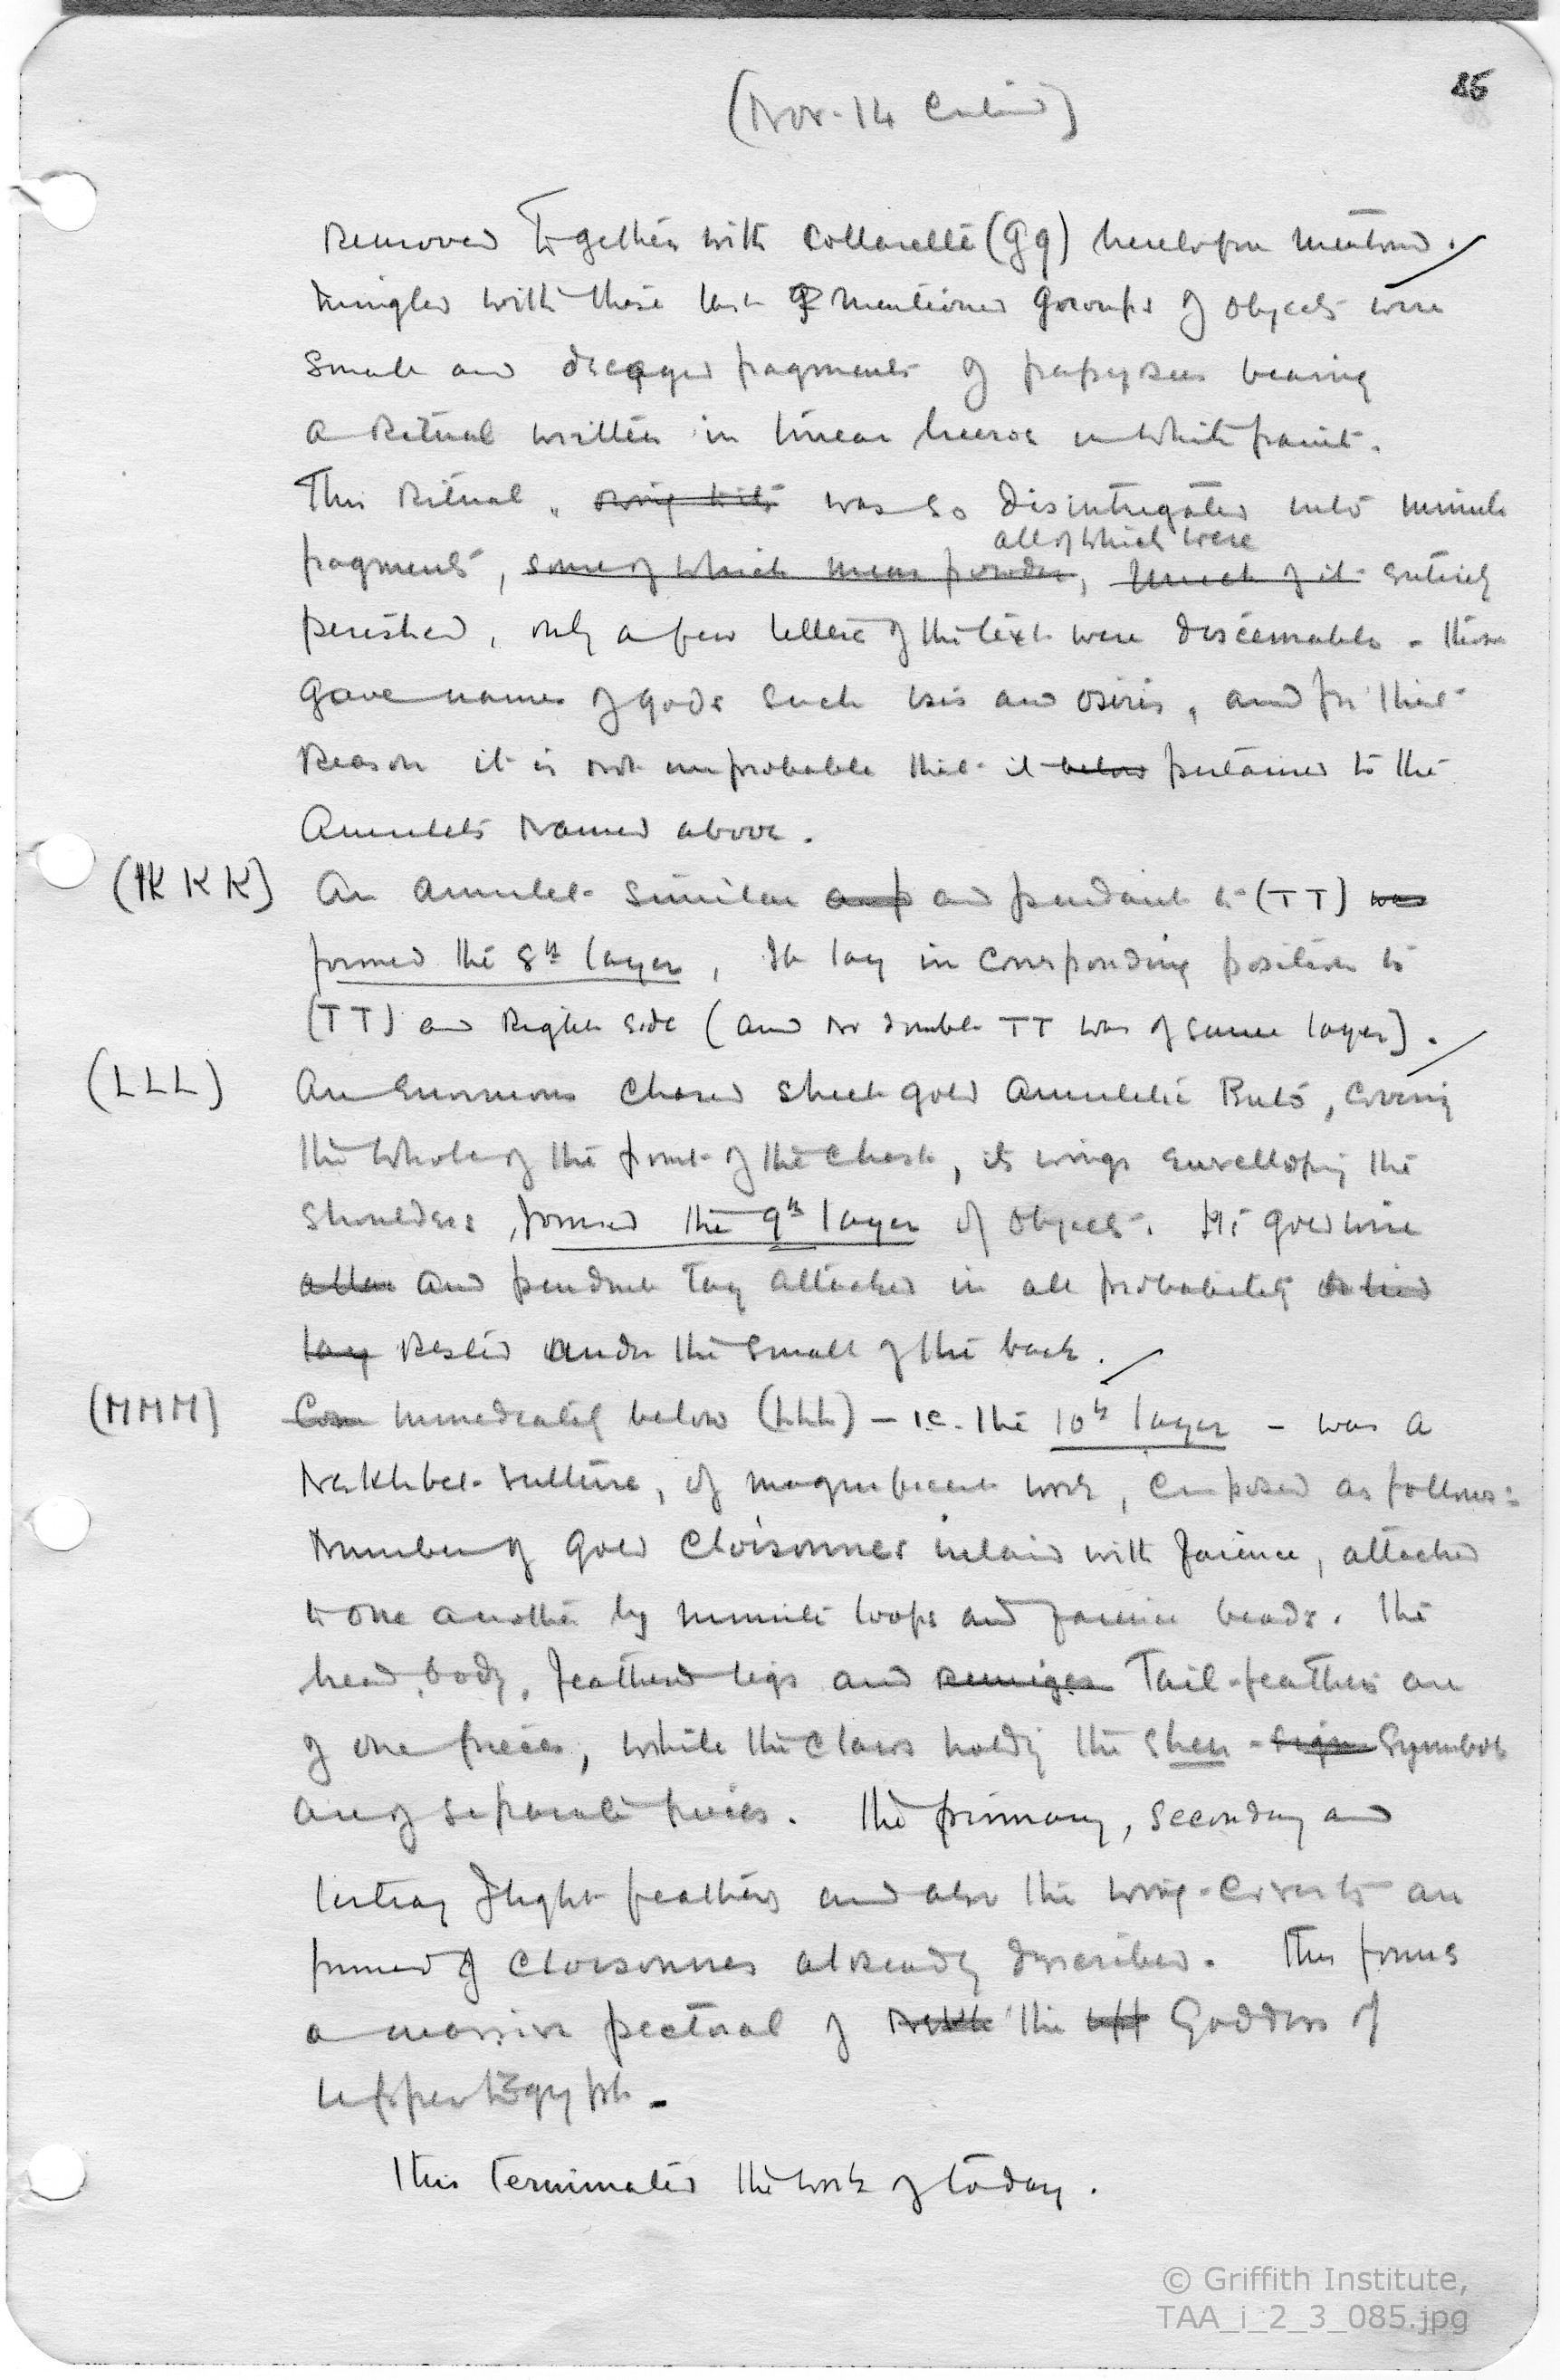 85
(Nov. 14 Contind)
Removed together with Collarette (gg) heretofore mentioned.
Mingled with these last mentioned groups of objects were
small and decayed fragments of papyrus bearing
a Ritual written in linear hierog in white paint.
This Ritual, owing to its was so disintegrated into minute
all of which were
fragments, some of which mean powder, much of it entirely
perished, only a few letters of the text were discernable - these
gave names of gods such Isis and Osiris, and for this
Reason it is not improbable that it below pertained to the
Amulets Named above.
(KKK) An amulet similar and pendant to (TT) was
formed the 8th layer, It lay in corresponding position to
(TT) on Right side (and no doubt TT was of same layer).
(LLL) An Enormous chased sheet gold Amuletic Buto, covering
the whole of the front of the chest, its wings envelloping the
shoulders, formed the 9th layer of objects. Its gold wire
and pendant Tag attached in all probability
lay Rested under the small of the back.
(MMM) Com Immediately below (LLL) - i.e. the 10th layer - was a
Nekhbet-Vulture, of magnificent work, composed as follows:
Number of gold cloisonnes inlaid with faience, attached
to one another by minute loops and faience beads. The
head, body, feathered legs and remiges Tail-feathers are
of one piece, while the claws holding the shen - sign Symbol
are of separate pieces. The primary, secondary and
tertiay flight feathers and also the wing-coverts are
formed of cloisonnes already described. This forms
a massive pectoral of Nekh the upp Goddess of
Upper Egypt.
This terminated the work of today.
© Griffith Institute,
TAA_i_2_3_085.jpg